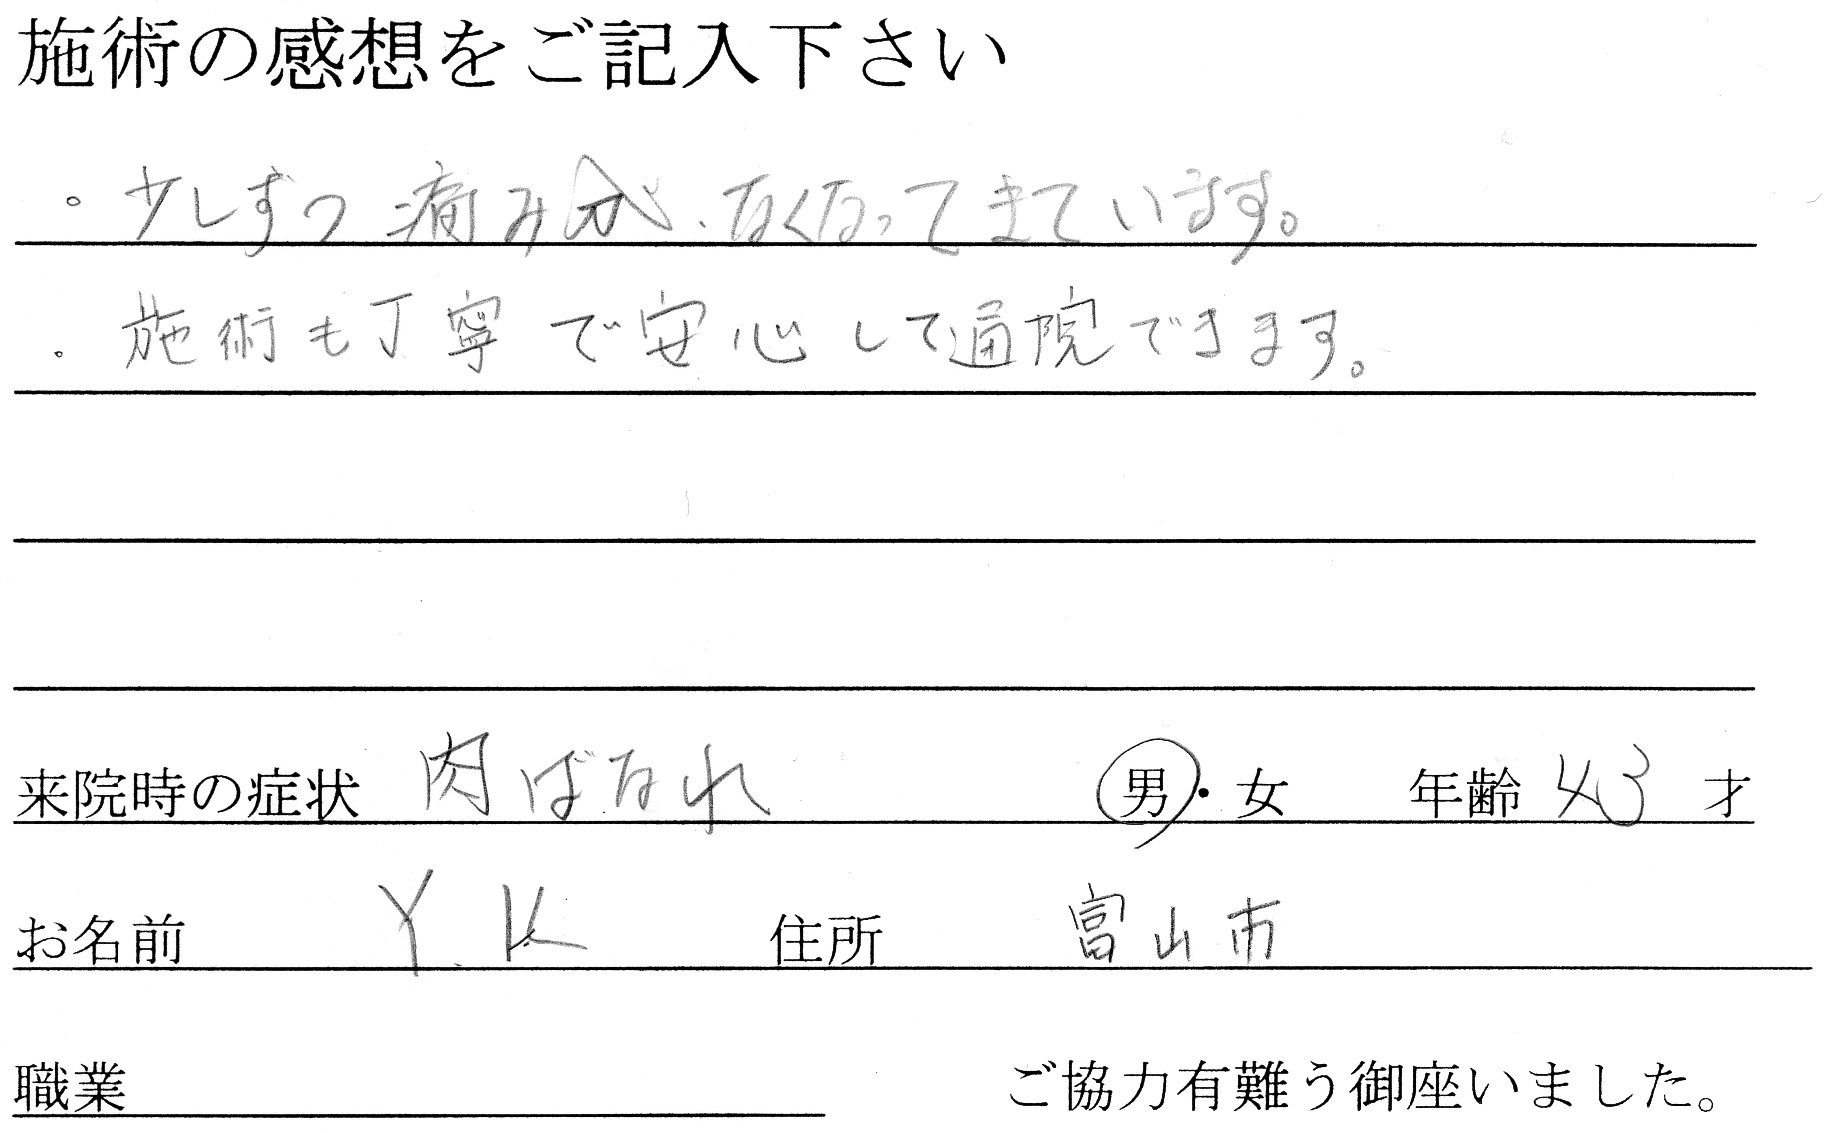 施術の感想をご記入下さい
。少しずつ痛みが、なくなってきています。
。施術も丁寧で安心して通院できます。
来院時の症状 肉ばなれ 男・女 年齢 43 才
お名前 Y.K 住所 富山市
職業 ご協力有難う御座いました。